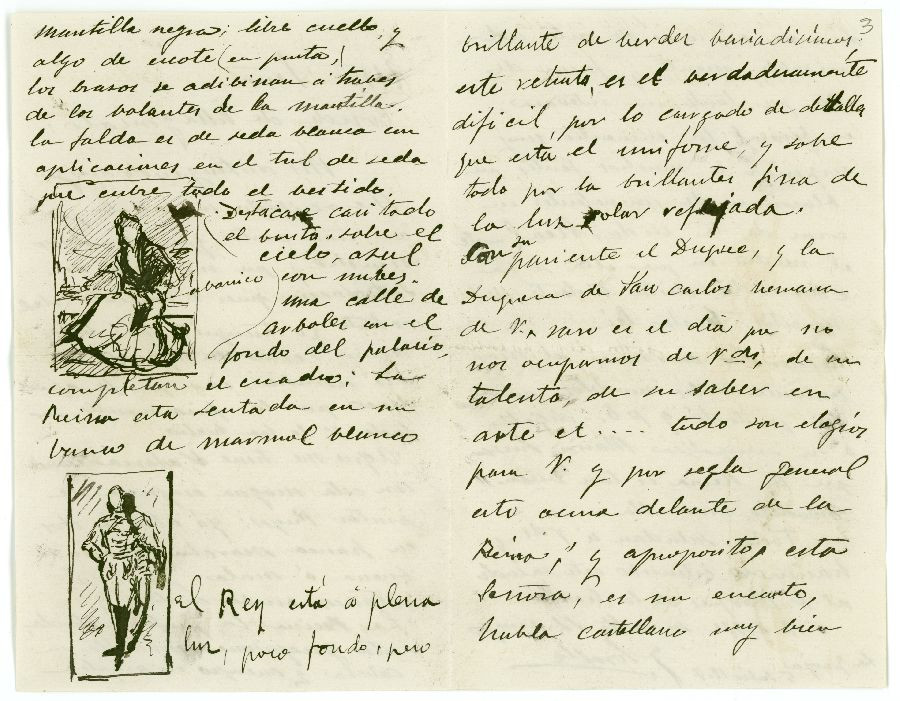 mantilla negra; libre cuello, y
algo de escote (en punta,)
los brasos se adibinan á traves
de los bolantes de la mantilla.
la falda es de seda blanca con
aplicaciones en el tul de seda
que cubre todo el bestido.
Destacase casi todo
el busto, sobre el
cielo, azul
abanico
con nubes
una calle de
arboles con el
fondo del palacio,
completan el cuadro; La
Reina esta sentada en un
banco de marmol blanco
el Rey está á plena
luz, poco fondo, pero
3
brillante de verdes bariadisimos;
este retrato, es el verdaderamente
dificil, por lo cargado de detalles
que esta el uniforme, y sobre
todo por la brillantes fisica de
la luz solar reflejada.
Con su pariente el Duque, y la
Duquesa de San Carlos hermana
de V. raro es el dia que no
nos ocupamos de Vds, de su
talento, de su saber en
arte et .... todo son elogios
para V. y por regla general
esto ocurre delante de la
Reina, y aproposito, esta
Señora, es un encanto,
habla castellano muy bien